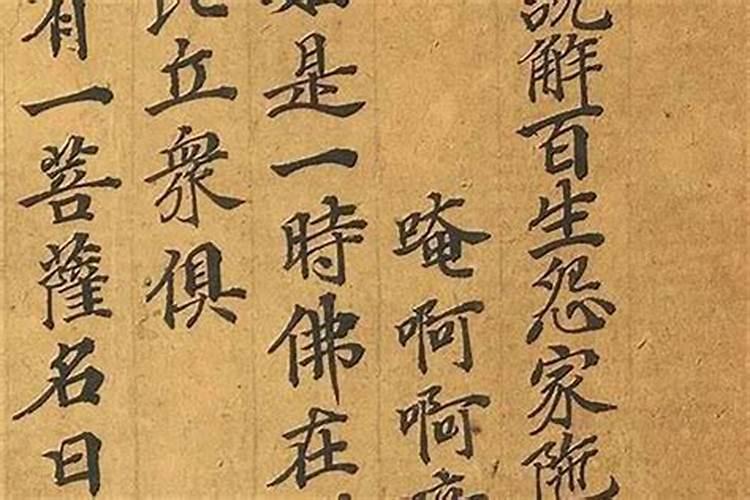 說解百生怨家陁
唵啊啊
如是一時佛在
比立衆俱
有一菩薩名曰